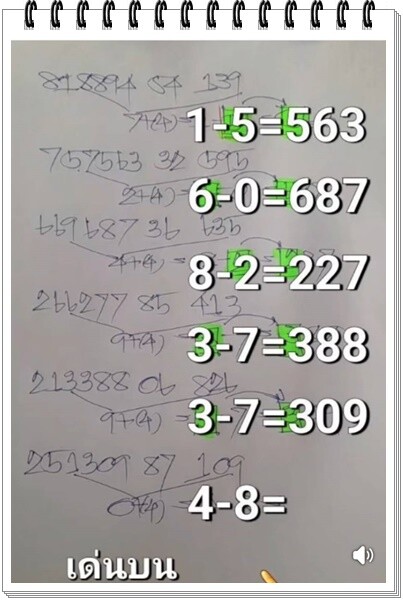 818894 84 139
7+(4)=
1-5=563
757563 32 595
2+(4)=
6-0=687
669687 36 635
8-2=227
266277 85 413
9+(4)
3-7=388
213388 06 826
9+(4)=
3-7=309
251309 87 109
0+(4)
4-8=
เด่นบน